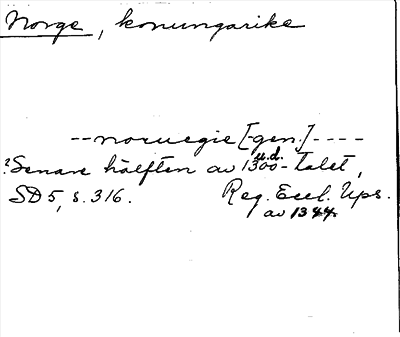 Norge, konungarike
--noruegie [-gen.]----
u.d.
? Senare hälften av 1300-talet,
SD 5, s. 316. Reg. Eccl. Ups.
av 1344.